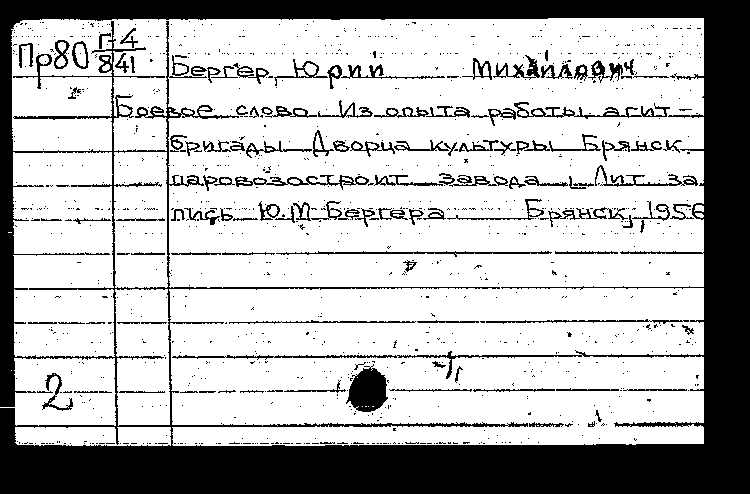 Пр80 Г-4
841
Бергер, Юрий Михайлович
Боевое слово. Из опыта работы агит-
бригады Дворца культуры Брянск.
паровозостроит завода. Лит. за
пись Ю.М Бергера. Брянск, 1956
2